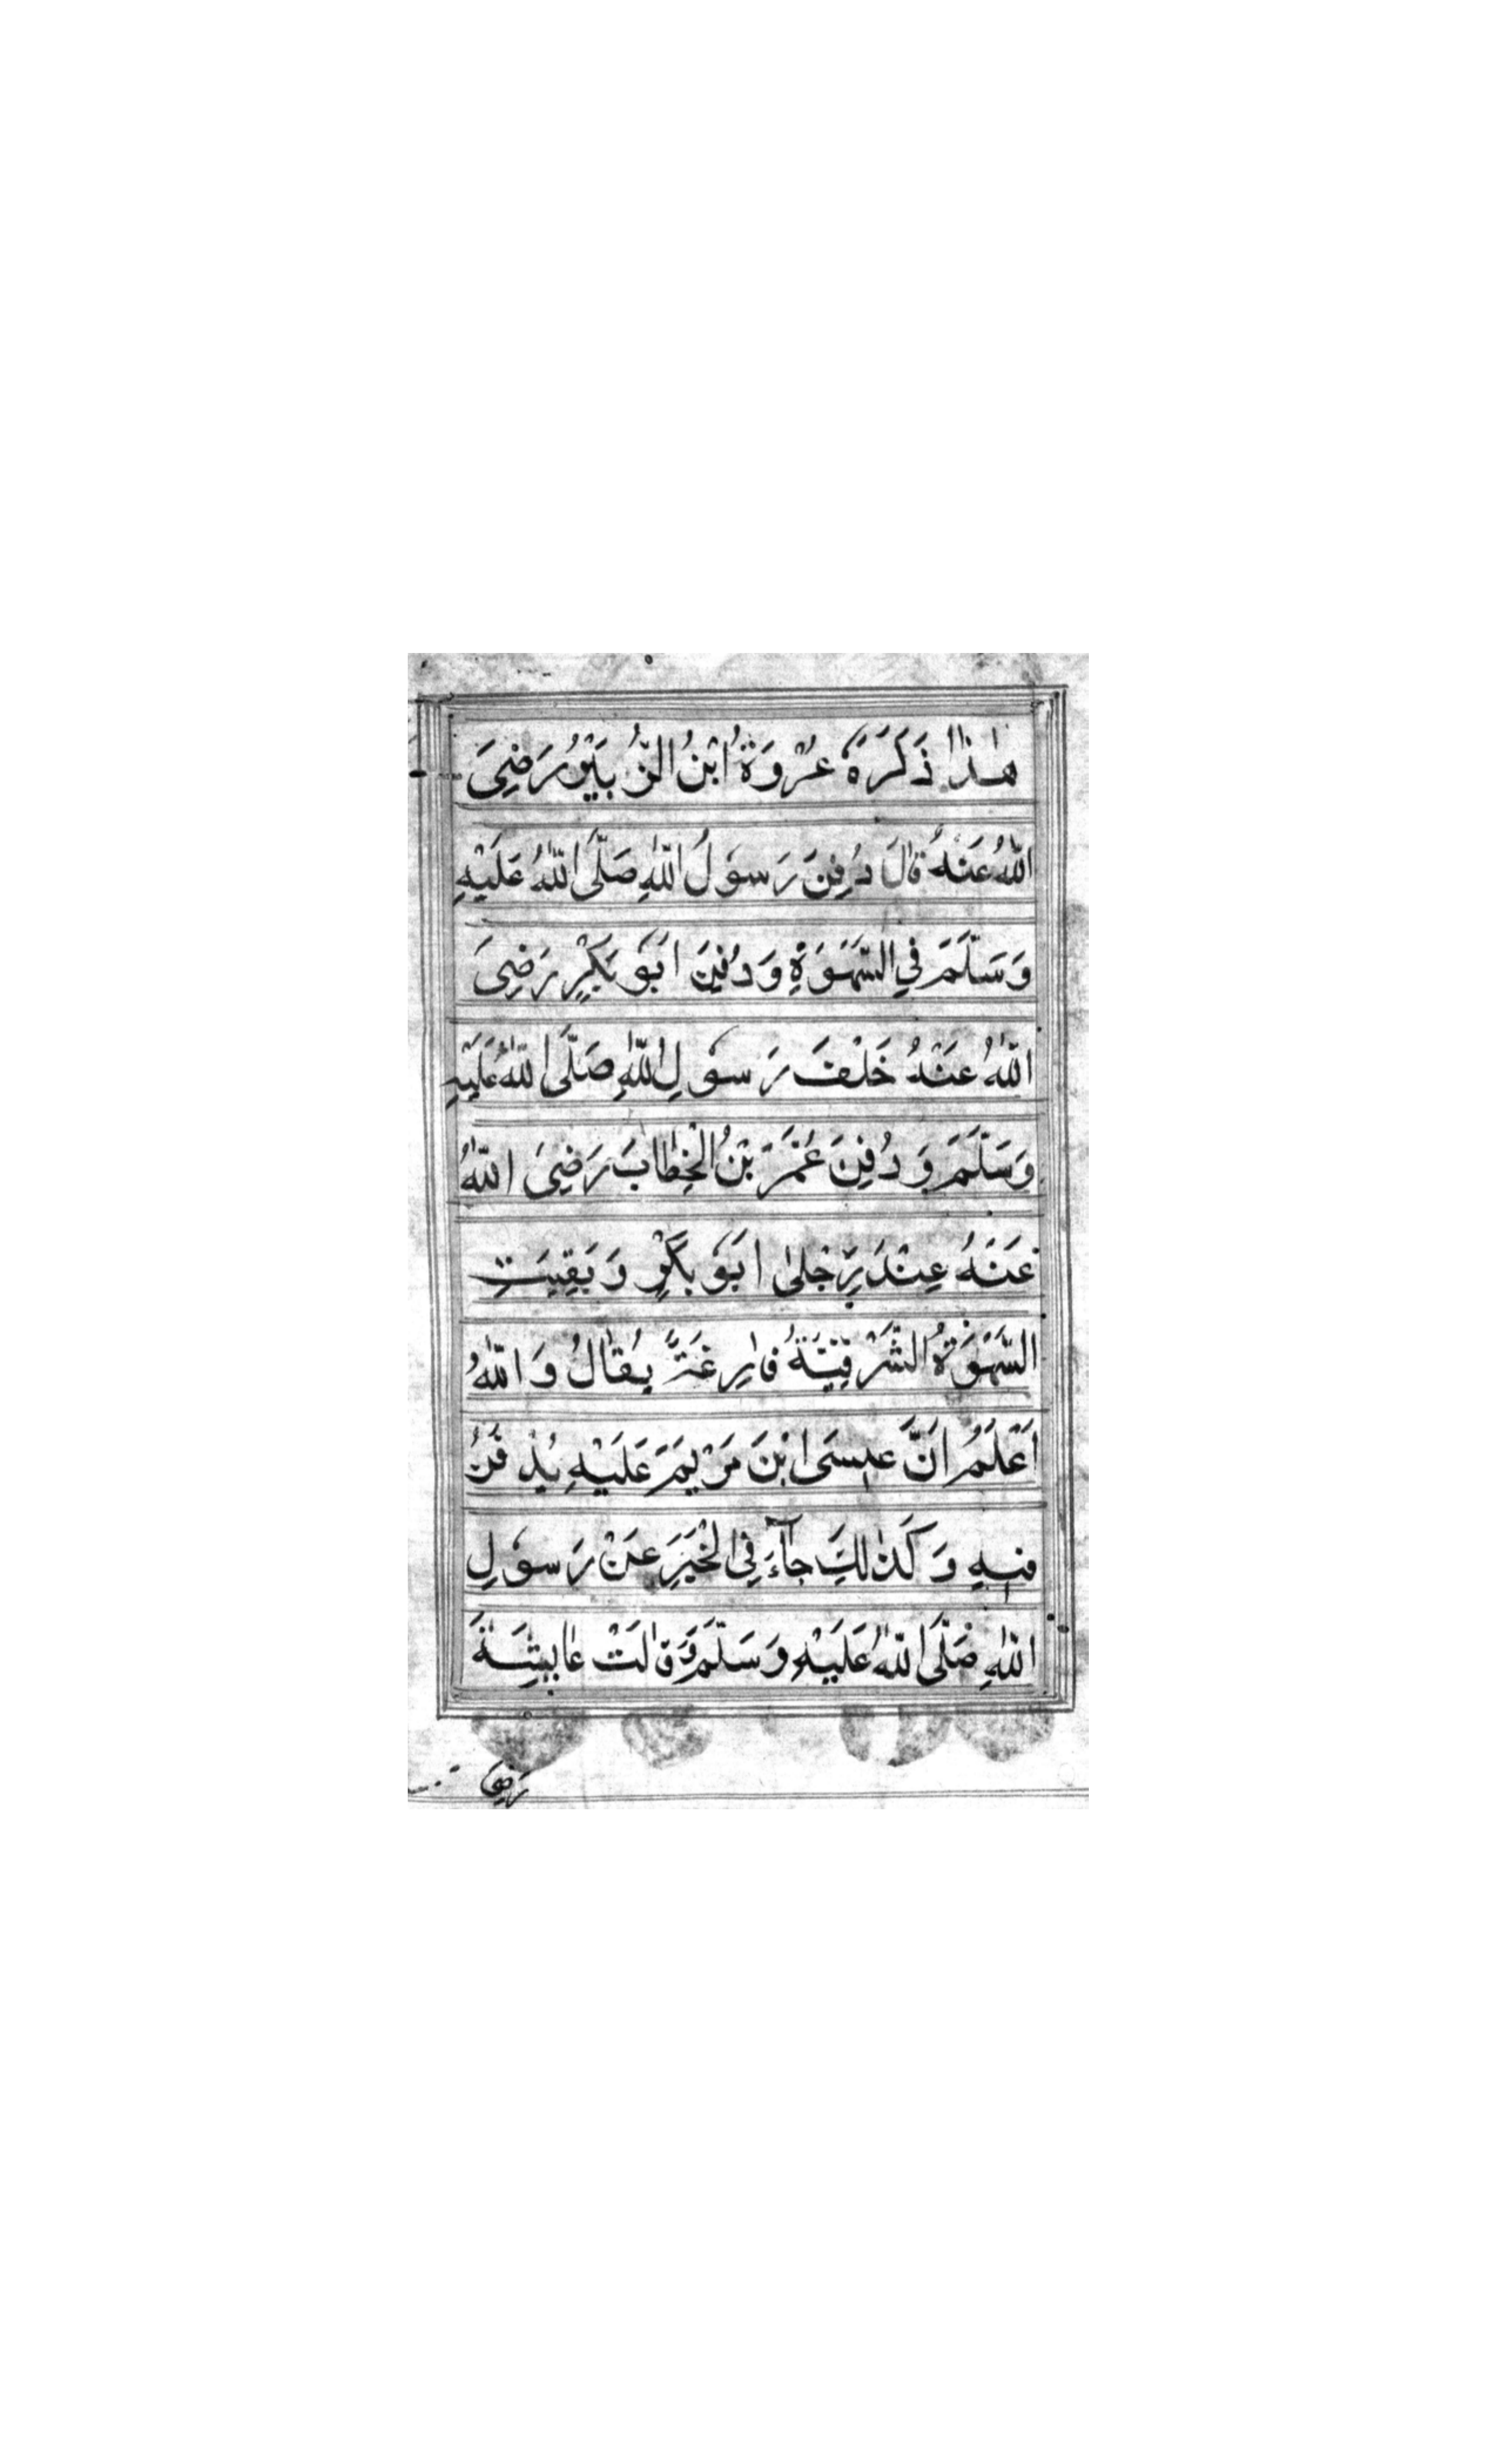 هٰذَا ذَكَرَهُ عُرْوَةُ ابْنُ الزُّبَيْرُ رَضِيَ
اللّٰهُ عَنْهُ قَالَ دُفِنَ رَسُولُ اللّٰهِ صَلَّى اللّٰهُ عَلَيْهِ
وَسَلَّمَ فِي السَّهْوَةِ وَدُفِنَ اَبُو بَكْرٍ رَضِيَ
اللّٰهُ عَنْهُ خَلْفَ رَسُولِ اللّٰهِ صَلَّى اللّٰهُ عَلَيْهِ
وَسَلَّمَ وَدُفِنَ عُمَرَ بْنُ الْخَطَّابَ رَضِيَ اللّٰهُ
عَنْهُ عِنْدَ رِجْلَىْ اَبُو بَكْرٍ وَبَقِيَتِ
السَّهْوَةُ الشَّرْقِيَّةُ فَارِغَةً يُقَالُ وَاللّٰهُ
اَعْلَمُ اَنَّ عِيسَى ابْنَ مَرْيَمَ عَلَيْهِ يُدْفَنُ
فِيهِ وَكَذٰلِكَ جَآءَ فِي الْخَبَرِ عَنْ رَسُولِ
اللّٰهِ صَلَّى اللّٰهُ عَلَيْهِ وَسَلَّمَ وَقَالَتْ عَايِشَةَ
رَضِيَ